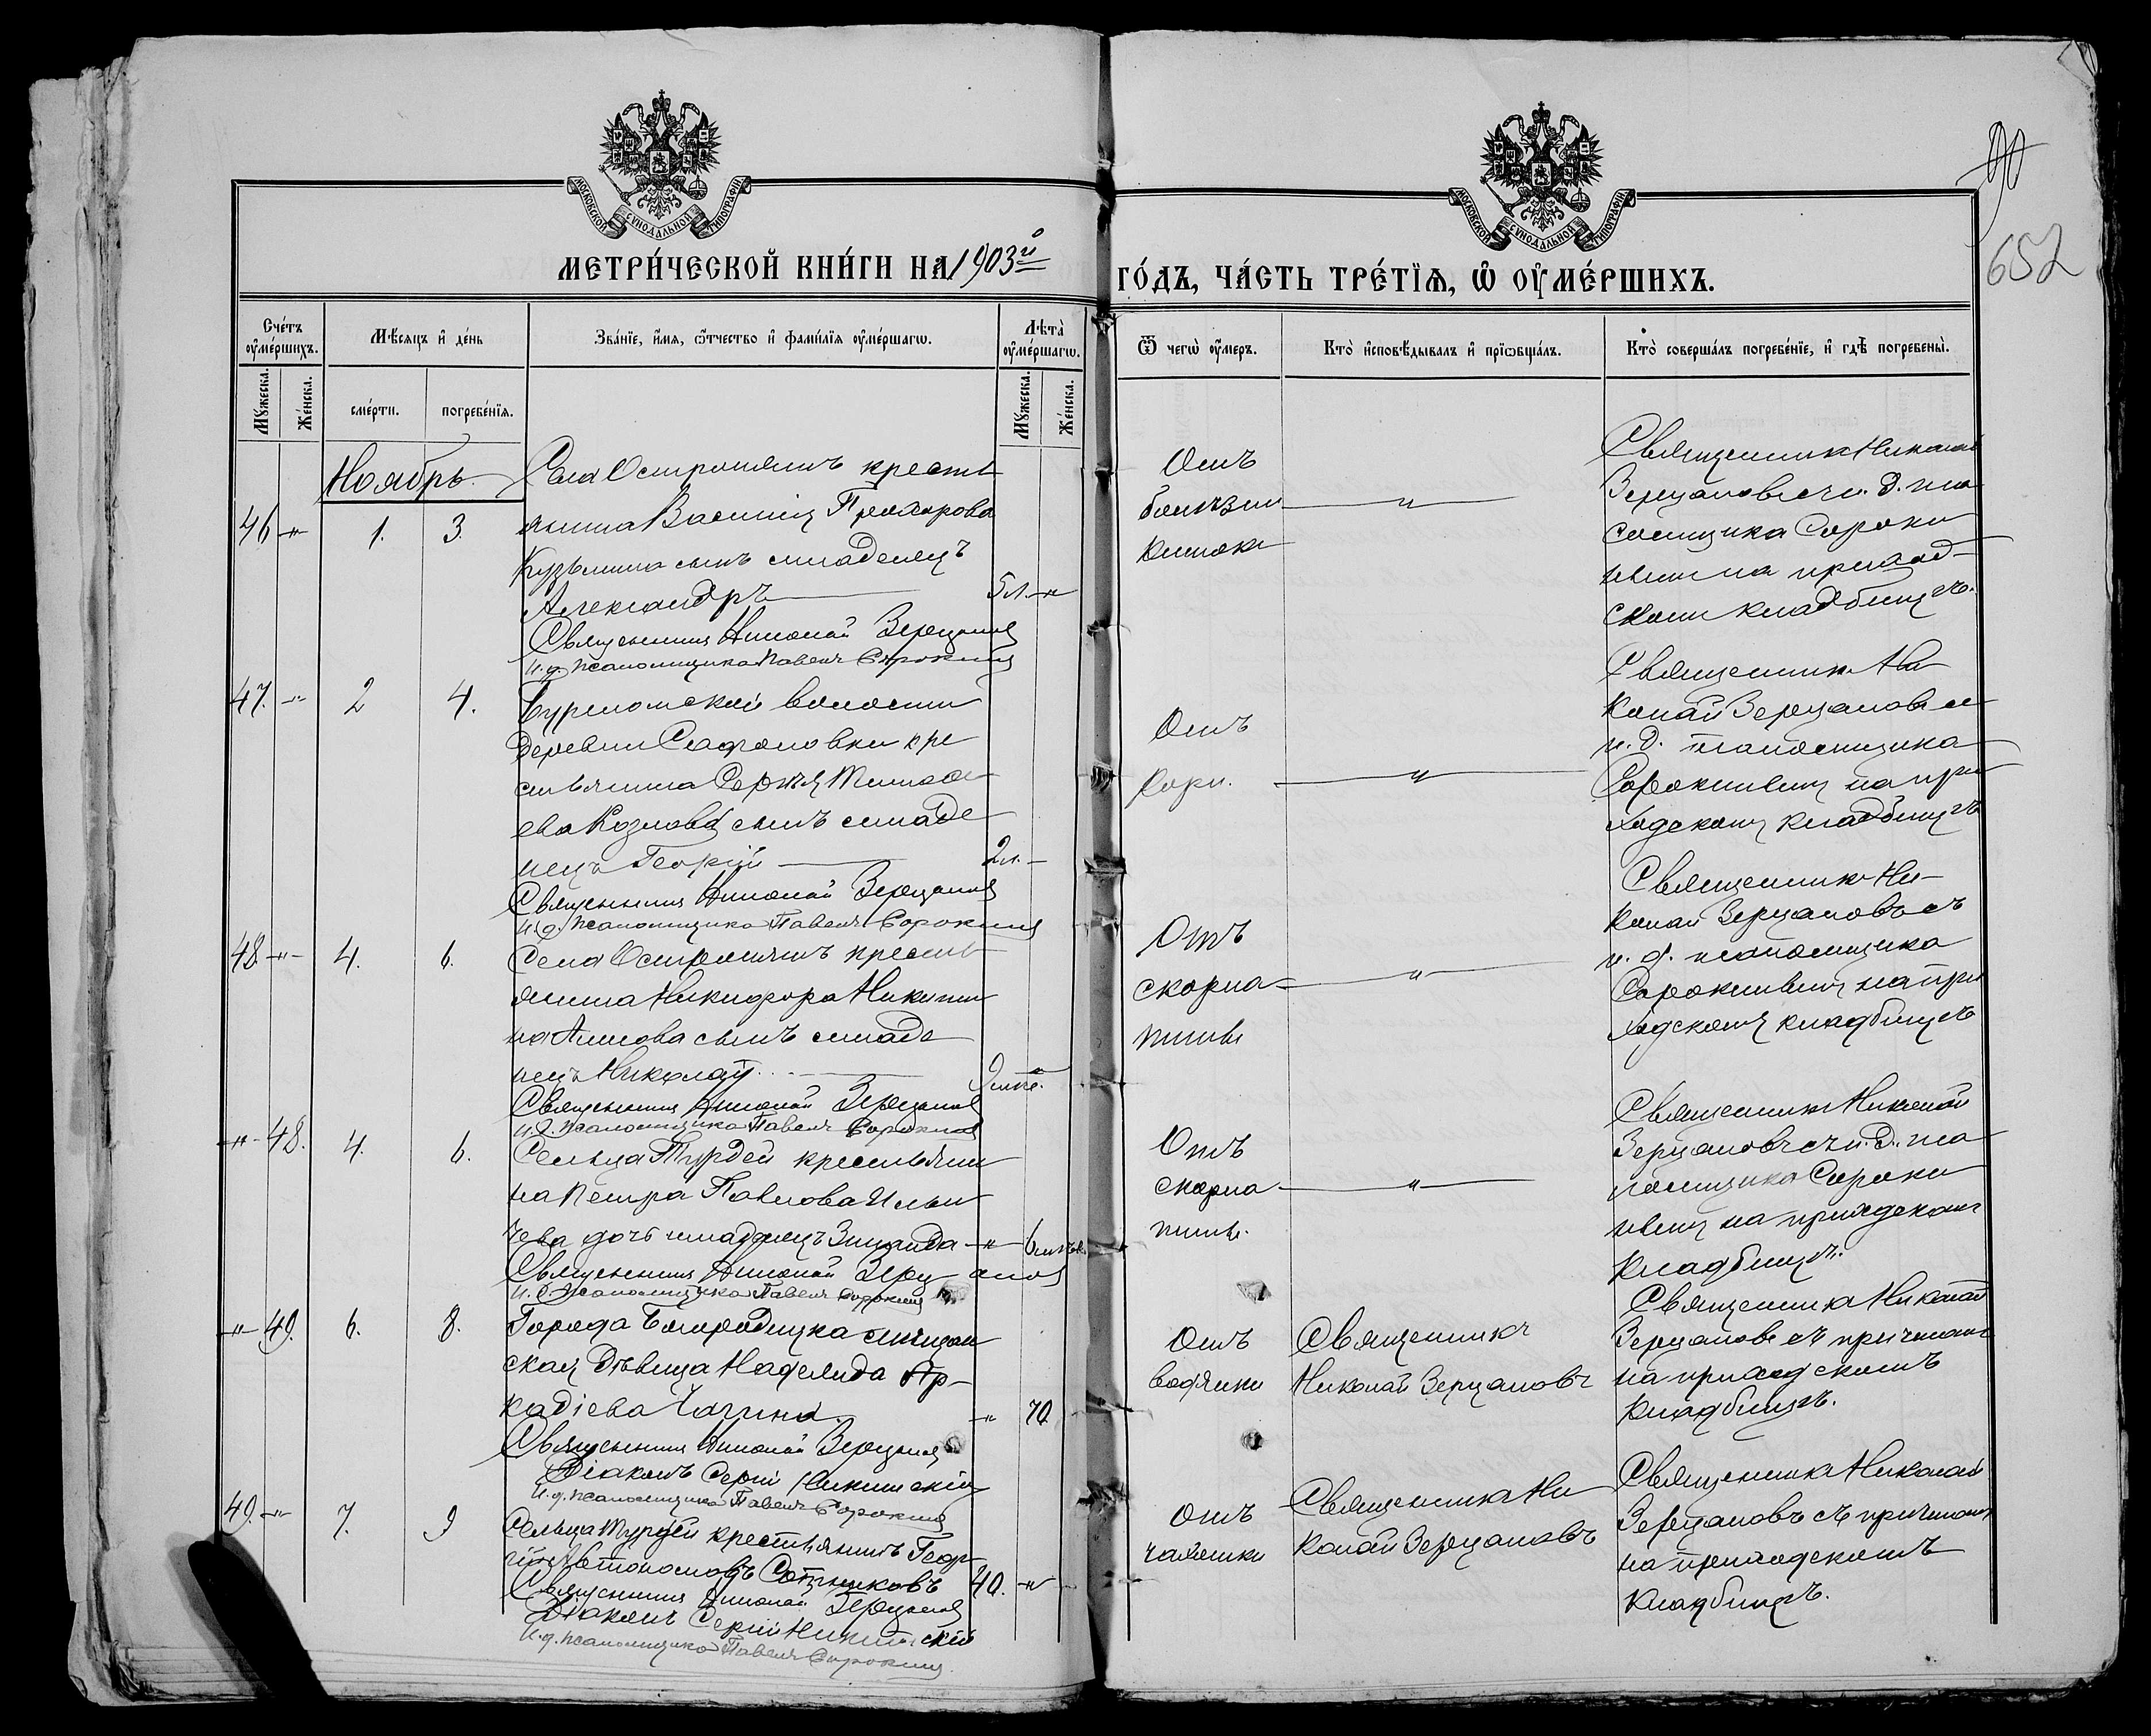 МОСКОВСКОЙ СУНОДАЛЬНОЙ ТИПОГРАФІИ
МОСКОВСКОЙ СУНОДАЛЬНОЙ ТИПОГРАФІИ
652
МЕТРИ́ЧЕСКОЙ КНИ́ГИ НА 1903й
ГО́ДЪ, ЧА́СТЬ ТРЕ́ТЇѦ, Ѡ҆ ОУ҆МЕ́РШИХЪ.
Сче́тъ оу҆ме́ршихъ.
Мѣ́сѧцъ и҆ де́нь
Зва́нїе, и҆́мѧ, ѻ҆́тчество и҆ фами́лїѧ оу҆ме́ршагѡ.
Лѣ́та оу҆ме́ршагѡ.
Ѿ чегѡ̀ оу҆́меръ.
Кто̀ и҆сповѣ́дывалъ и҆ прїѡбща́лъ.
Кто̀ соверша́лъ погребе́нїе, и҆ гдѣ̀ погребены̀.
Мꙋ́жеска.
Же́нска.
сме́рти.
погребе́нїѧ.
Мꙋ́жеска.
Же́нска.
Ноябрь
46 -"- 1. 3.
Села Остромятъ кресть
янина Василія
Кузьмина сынъ младенецъ
Александръ 5 л. -"-
Священникъ Николай Зерцаловъ
И.д. псаломщика Павелъ Сорокинъ
Отъ
болѣзни
кишокъ
"
Священникъ Николай
Зерцаловъ съ и. д. пса
ломщика Сороки
нымъ на приход
скомъ кладбищѣ.
47. -"- 2 4.
волости
деревни Сафоновки кре
стьянина Сергѣя Тимоѳе
ева Козлова сынъ младе
нецъ Георгій 2 л. -
Священникъ Николай Зерцаловъ
И.д. псаломщика Павелъ Сорокинъ
Отъ
кори.
"
Священникъ Ни
колай Зерцаловъ съ
и. д. псаломщика
Сорокинымъ на при
ходскомъ кладбищѣ
48 -"- 4. 6.
Села Остромятъ кресть
янина Никифора Никити
на сынъ младе
нецъ Николай
Священникъ Николай Зерцаловъ
И.д. псаломщика Павелъ Сорокинъ
Отъ
скарла
тины
"
Священникъ Ни
колай Зерцаловъ съ
и. д. псаломщика
Сорокинымъ на при
ходскомъ кладбищѣ
-"- 48. 4. 6.
Сельца Турдей крестьяни
на Петра Павлова Ильи
чева дочь младенецъ Зинаида -"-
Священникъ Николай Зерцаловъ
И.д. псаломщика Павелъ Сорокинъ
Отъ
скарла
тины.
"
Священникъ Николай
Зерцаловъ съ и. д. пса
ломщика Сороки
нымъ на приходскомъ
кладбищѣ.
-"- 49. 6. 8.
Города Богородицка мѣщан
ская дѣвица Надежда Ар
кадіева Чагина -"- 70
Священникъ Николай Зерцаловъ
Діаконъ Сергій Никитскій
И.д. псаломщика Павелъ Сорокинъ
Отъ
водянки
Священникъ
Николай Зерцаловъ
Священникъ Николай
Зерцаловъ съ причтомъ
на приходскомъ
кладбищѣ.
49. -"- 7. 9
Сельца Турдей крестьянинъ Геор
гій Автономовъ Сотниковъ 40. -"-
Священникъ Николай Зерцаловъ
Діаконъ Сергій Никитскій
И.д. псаломщика Павелъ Сорокинъ.
Отъ
чахотки
Священникъ Ни
колай Зерцаловъ
Священникъ Николай
Зерцаловъ съ причтомъ
на приходскомъ
кладбищѣ.